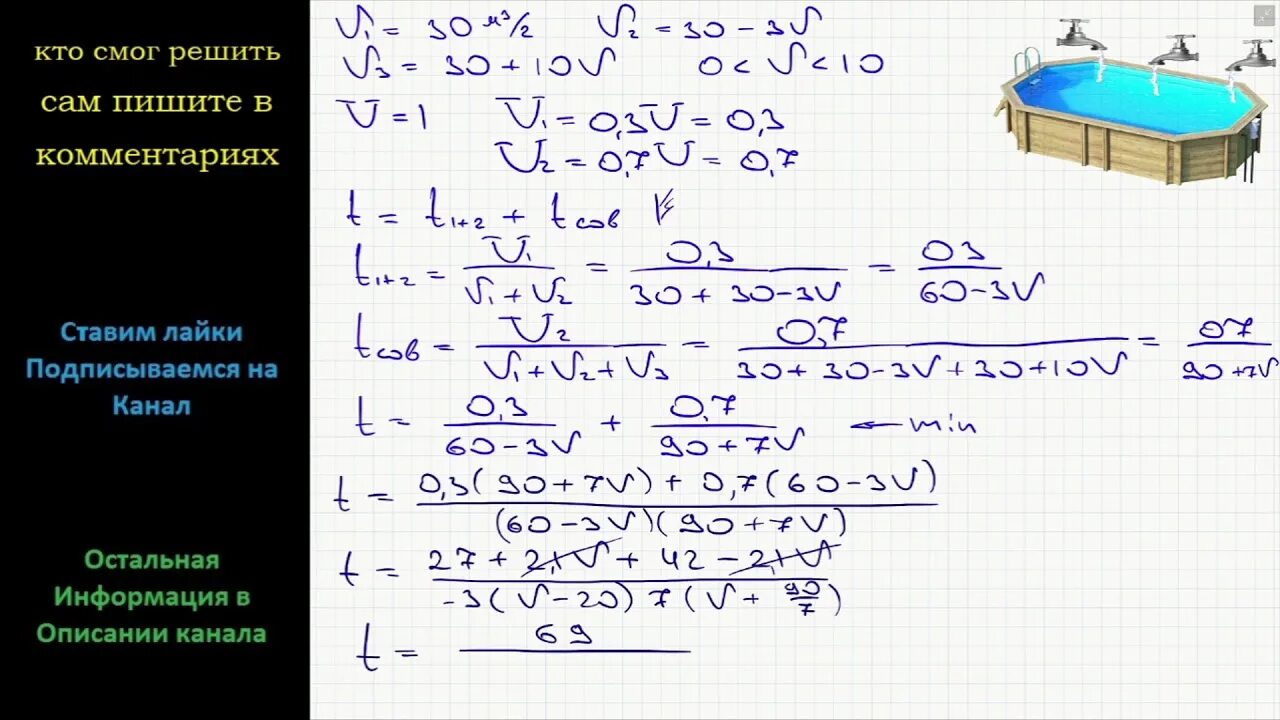 кто смог решить
сам пишите в
комментариях
Ставим лайки
Подписываемся на
Канал
Остальная
Информация в
Описании канала
V₁ = 30 м³/2 V₂ = 30 - 3V
V₃ = 30 + 10V 0 < V < 10
U = 1 U₁ = 0,3U = 0,3
U₂ = 0,7U = 0,7
t = t₁₊₂ + tсов
t₁₊₂ = U₁/(V₁ + V₂) = 0,3/(30 + 30 - 3V) = 03/(60 - 3V)
tсов = U₂/(V₁ + V₂ + V₃) = 0,7/(30 + 30 - 3V + 30 + 10V) = 07/(90 + 7V)
t = 0,3/(60 - 3V) + 0,7/(90 + 7V) ← min
t = (0,3(90 + 7V) + 0,7(60 - 3V))/((60 - 3V)(90 + 7V))
t = (27 + 2,1V + 42 - 2,1V)/(-3(V - 20) 7(V + 90/7))
t = 69